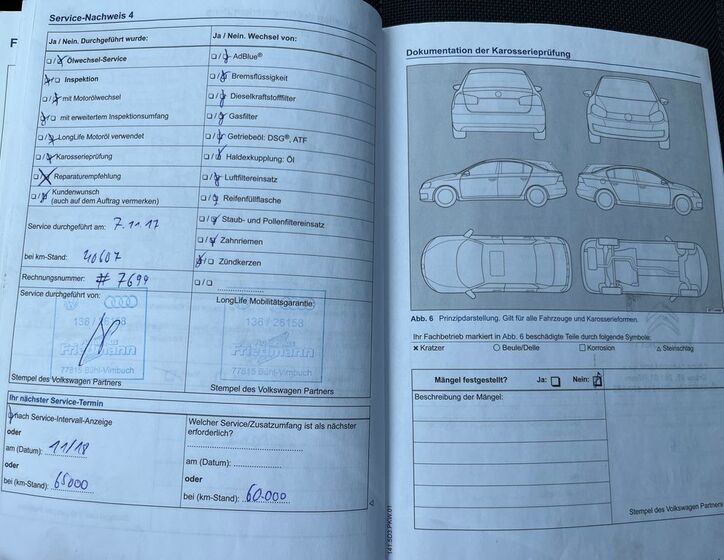 Service-Nachweis 4
Ja / Nein. Durchgeführt wurde:
Ölwechsel-Service
Inspektion
mit Motorölwechsel
mit erweitertem Inspektionsumfang
LongLife Motoröl verwendet
Karosserieprüfung
Reparaturempfehlung
Kundenwunsch
(auch auf dem Auftrag vermerken)
Service durchgeführt am: 7.11.17
bei km-Stand: 40607
Rechnungsnummer: # 7699
Ja / Nein. Wechsel von:
AdBlue®
Bremsflüssigkeit
Dieselkraftstofffilter
Gasfilter
Getriebeöl: DSG®, ATF
Haldexkupplung: Öl
Luftfiltereinsatz
Reifenfüllflasche
Staub- und Pollenfiltereinsatz
Zahnriemen
Zündkerzen
Service durchgeführt von:
136 / 26158
Friedmann
77815 Bühl-Vimbuch
Stempel des Volkswagen Partners
LongLife Mobilitätsgarantie:
136 / 26158
Friedmann
77815 Bühl-Vimbuch
Stempel des Volkswagen Partners
Ihr nächster Service-Termin
nach Service-Intervall-Anzeige
oder
am (Datum): 11/18
oder
bei (km-Stand): 65000
Welcher Service/Zusatzumfang ist als nächster
erforderlich?
am (Datum):
oder
bei (km-Stand): 60.000
F
Dokumentation der Karosserieprüfung
Abb. 6 Prinzipdarstellung. Gilt für alle Fahrzeuge und Karosserieformen.
Ihr Fachbetrieb markiert in Abb. 6 beschädigte Teile durch folgende Symbole:
× Kratzer ○ Beule/Delle □ Korrosion △ Steinschlag
Mängel festgestellt? Ja: Nein:
Beschreibung der Mängel:
Stempel des Volkswagen Partners
141.5D3.PKW.01